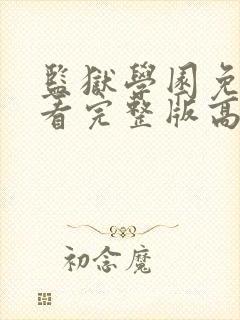 監獄學園免
看完整版高
初念魔